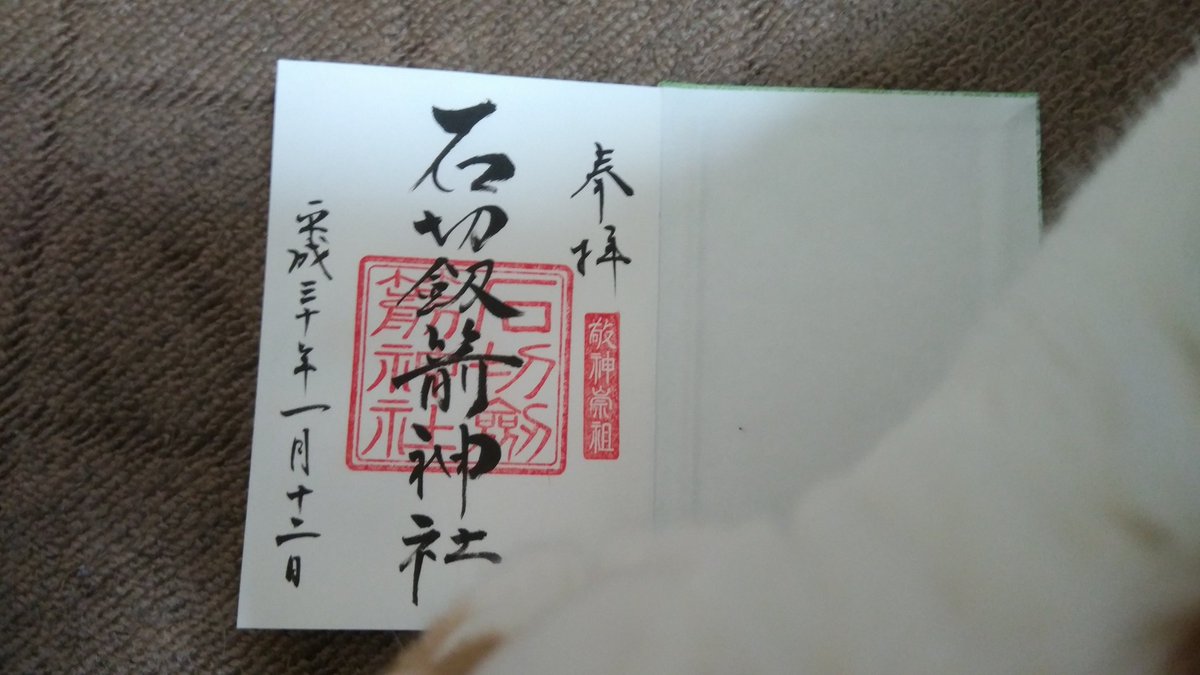 奉拝
敬神崇祖
石切釼箭神社
石切劔
箭神社
平成三十年一月十二日